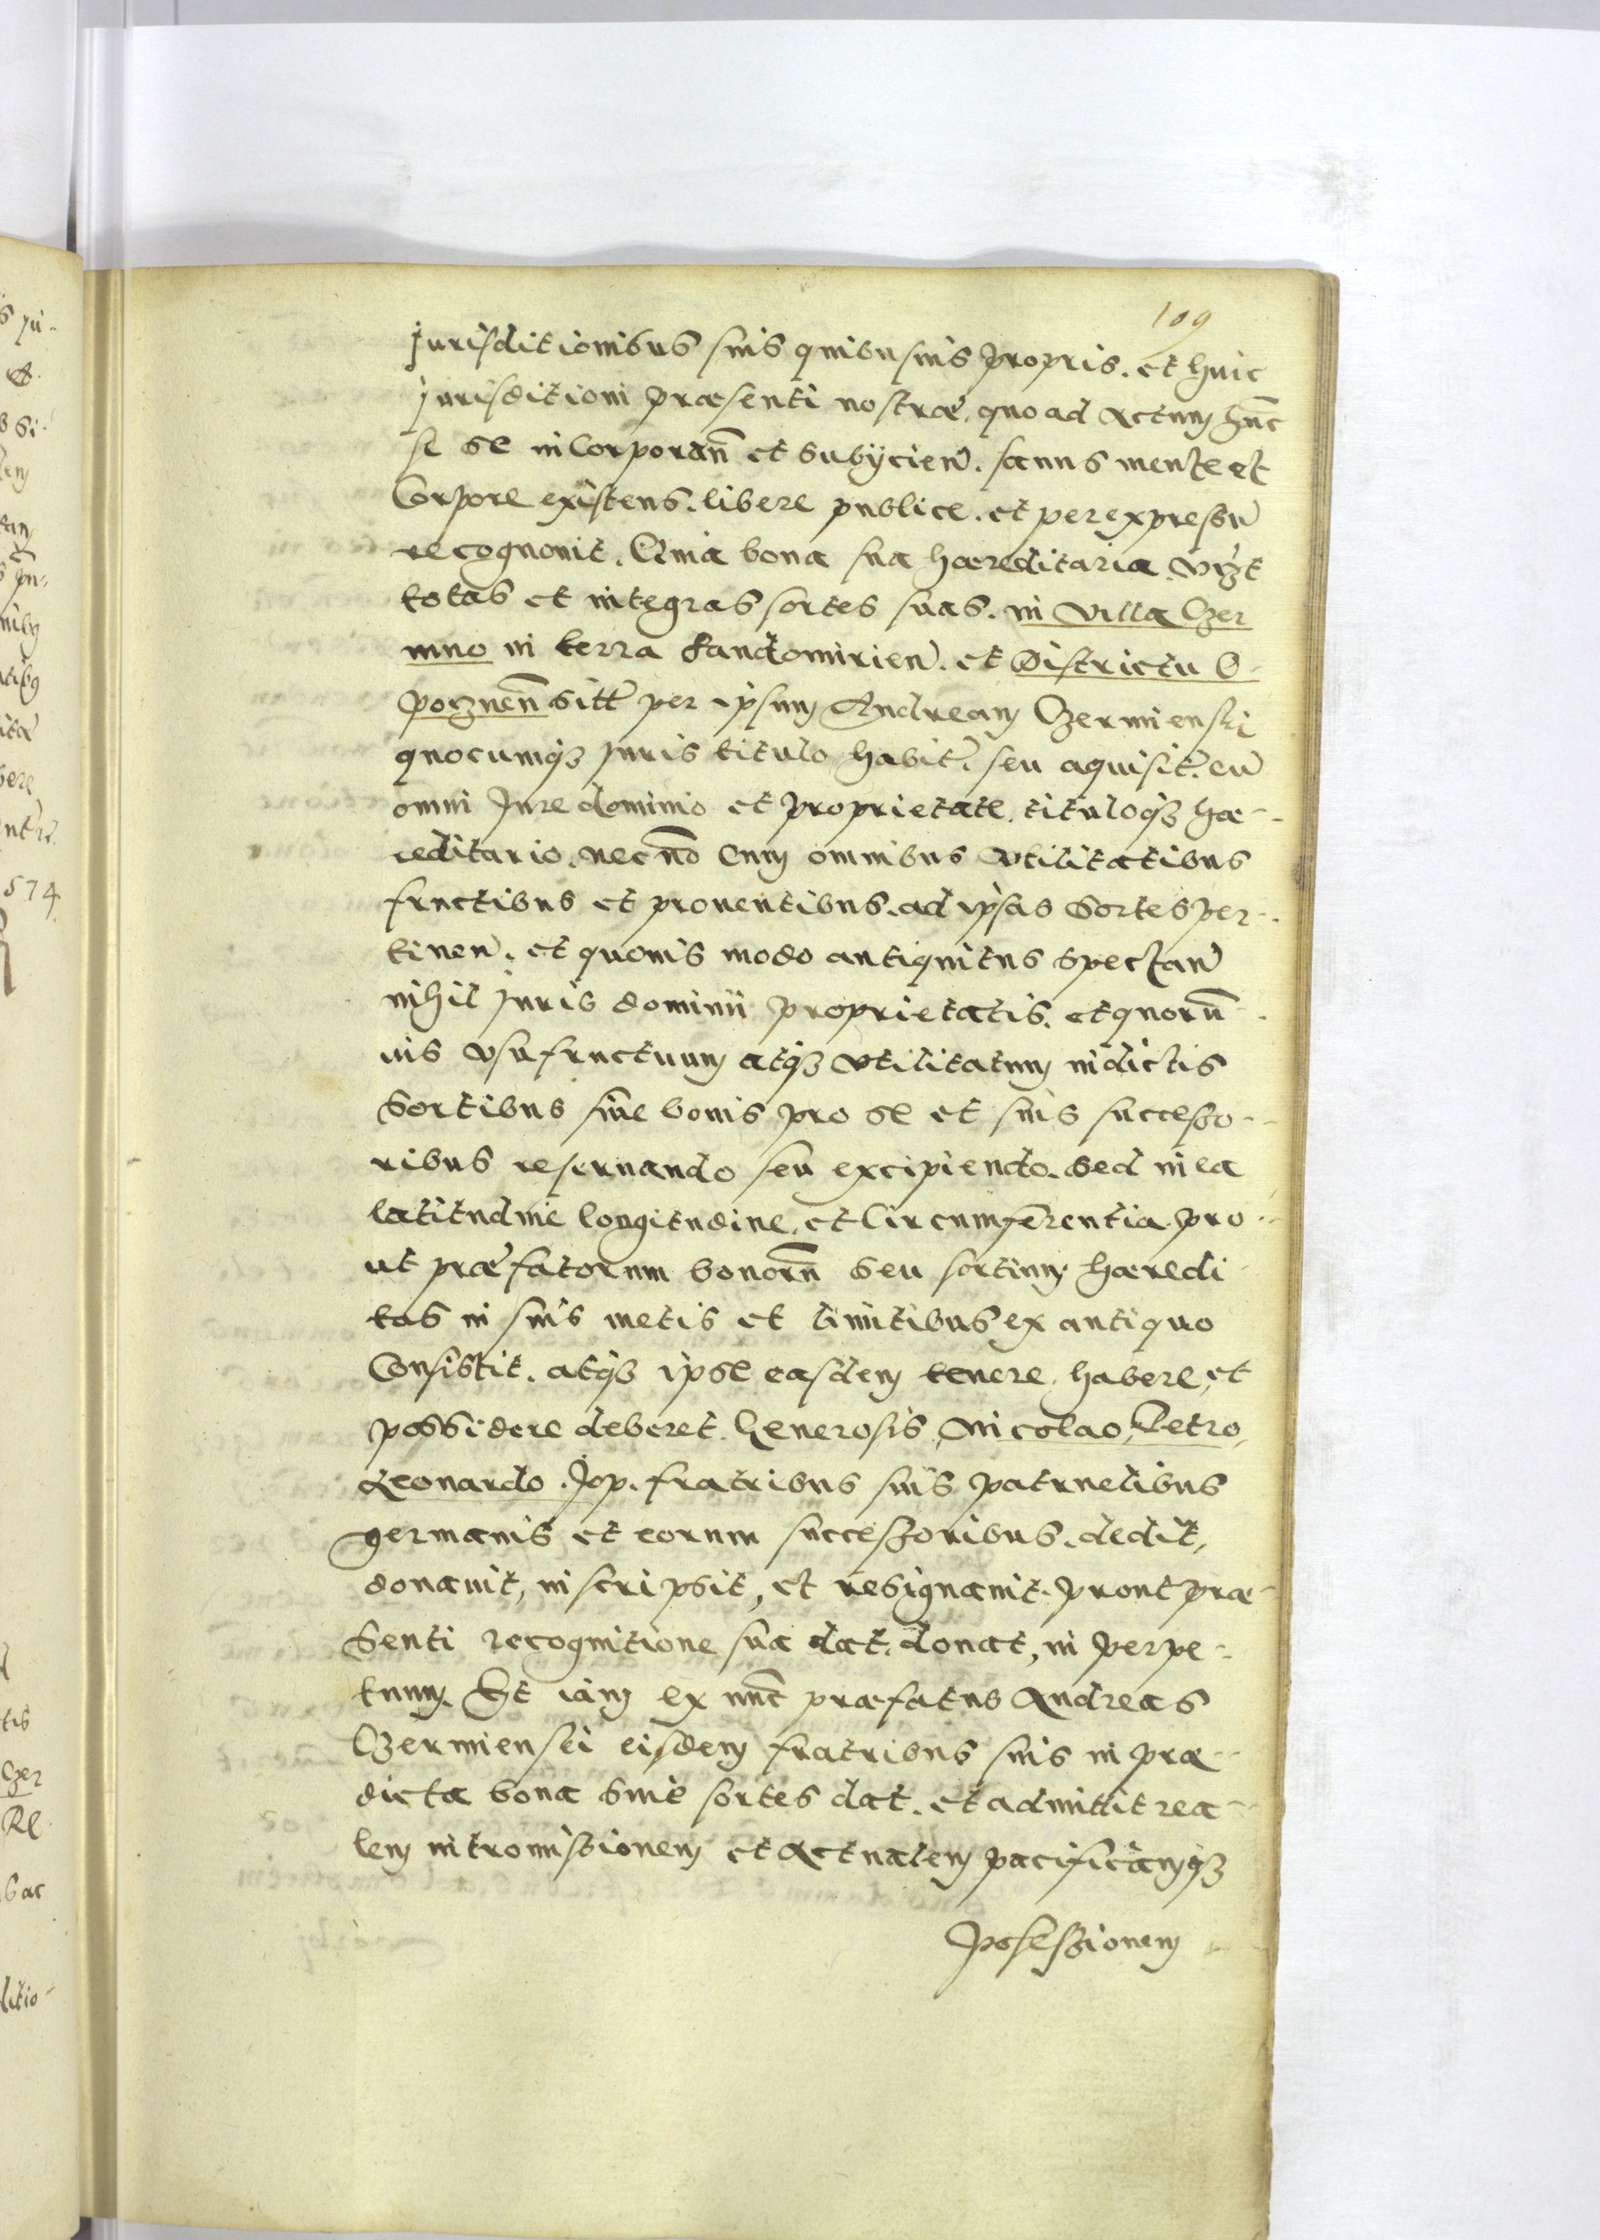 109
Jurisditionibus suis quibusuis propris. et huic
Jurisditioni præsenti nostræ quo ad actum hunc
se se in Corporan̄ et subÿcien̄. sanus mente et
Corpore existens. libere publice. et per expressū
recognouit. Quia bona sua hæreditaria vrzt
totas et integras sortes suas. in villa Czer
mno in terra Sandomirien̄. et Districtu O-
poznen̄ sitt per ipsum Andream Czermienski
quocumqȝ juris titulo habit̄. seu aquisit̄. cū
omni Jure dominio et proprietate. tituloqȝ hæ-
reditario. nec nō Cum omnibus vtilitatibus
fructibus et prouentibus. ad ipsas Sortes per-
tinen̄. et quouis modo antiquitus Spectan̄
nihil juris dominii proprietatis. et quorū-
uis vsufructuum atqȝ vtilitatum in dictis
Sortibus siue bonis pro se et suis successo-
ribus reseruando seu excipiendo. sed in ea
latitudine longitudine. et Circumferentia. pro-
ut præfatorum bonorū seu sortium hæredi
tas in suis metis et limitibus ex antiquo
Consistit. atqȝ ipse easdem tenere habere, et
possidere deberet. Generosis Nicolao, Petro,
Leonardo. Jop. fratribus suis patruelibus
germanis et eorum successoribus. dedit,
donauit, inscripsit, et resignauit. prout præ-
senti recognitione sua dat. donat, in perpe-
tuum. Et iam ex nūc præfatus Andreas
Czermiensci eisdem fratribus suis in præ-
dicta bona siue sortes dat. et admittit rea-
lem intromissionem et actualem pacificamqȝ
possessionem
574